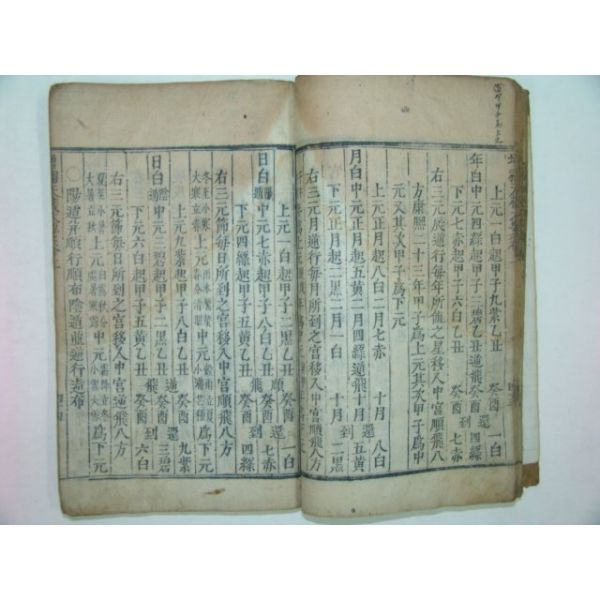 上元一白起甲子九紫乙丑 癸酉 一白
年白中元四綠起甲子三碧乙丑逆飛癸酉還到四綠
下元七赤起甲子六白乙丑 癸酉 七赤
右三元於逆行每年所值之星移入中宮順飛八
方康熙二十三年甲子爲上元其次甲子爲中
元又其次甲子爲下元
上元正月起八白二月七赤 十月 八白
月白中元正月起五黃二月四綠逆飛十月還到五黃
下元正月起二黑二月一白 十月 二黑
右三元月逆行每月所到之宮移入中宮順飛八方
上元一白起甲子二黑乙丑 癸酉 一白
日白陽遁中元七赤起甲子八白乙丑順飛癸酉還到七赤
下元四綠起甲子五黃乙丑 癸酉 四綠
冬至小寒大寒立春上元雨水驚蟄春分清明中元穀雨立夏小滿芒種爲下元
上元九紫起甲子八白乙丑 癸酉 九紫
日白陰遁中元三碧起甲子二黑乙丑逆飛癸酉還到三碧
下元六白起甲子五黃乙丑 癸酉 六白
右三元節每日所到之宮移入中宮順飛八方
夏至小暑大暑立秋上元處暑白露秋分寒露中元霜降立冬小雪大雪爲下元
〇陽遁並順行順布陰遁並逆行逆布